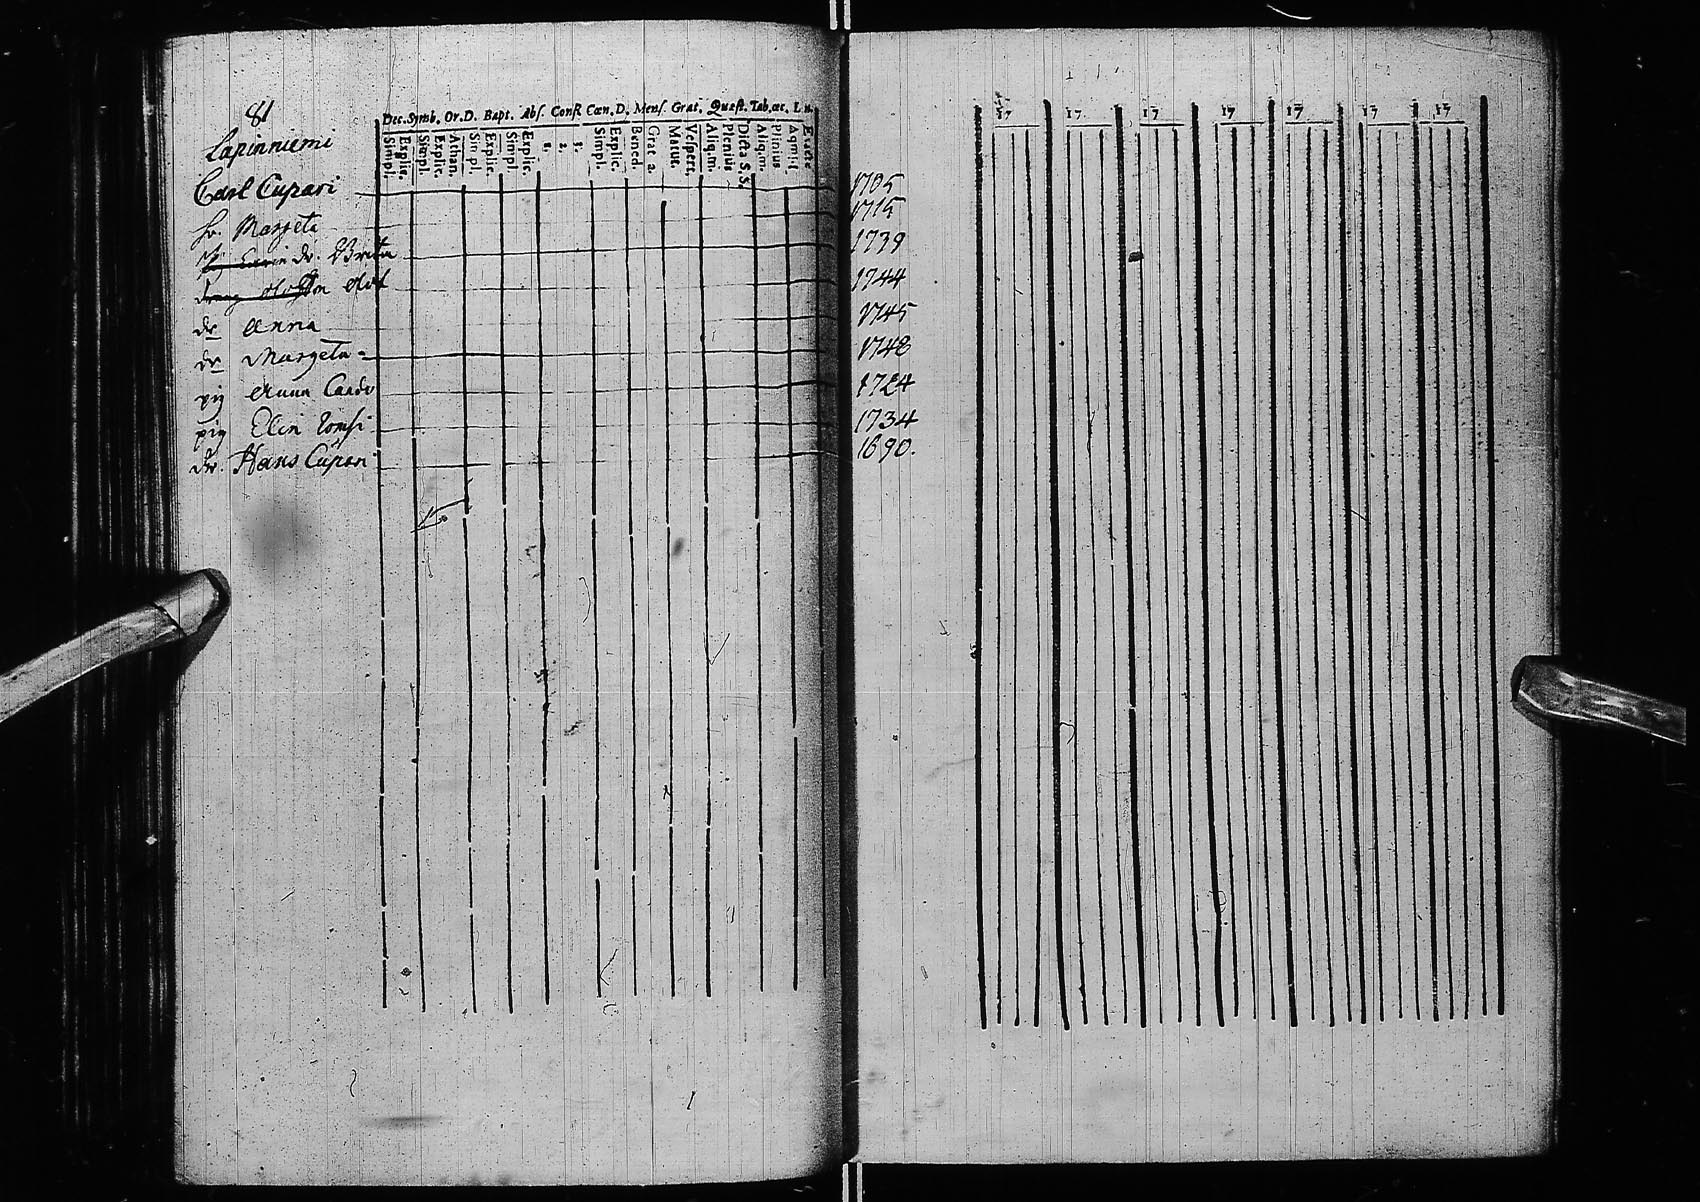 81
Dec. Symb. Or. D. Bapt. Abs. Conf. Cœn. D. Mens. Grat. Quæst. Tab. œc.
Simpl. Explic. Simpl. Explic. Athan. Simpl. Explic. Simpl. Explic. 1. 2. 3. Simpl. Explic. Bened. Grat. a. Matut. Vespert. Aliq. m. Plenius Dicta S. S. Aliq. m. Plenius
Lapinniemi
Carl Cupari 1705
hu. Margeta 1715
dr. Britta 1739
Olof 1744
dr Anna 1745
dr Margeta 1748
pig Anna 1724
pig Elin Tomsi 1734
dr. Hans Cupari 1690.
17 17 17 17 17 17 17